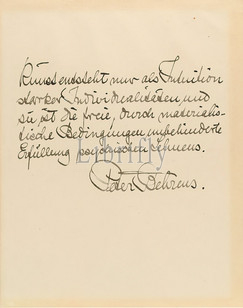 Kunst entsteht nur als Intuition
starker Individualitäten, und
sie ist die freie, durch materialis-
tische Bedingungen unbehinderte
Erfüllung psychischen
Peter Behrens.
Librifly